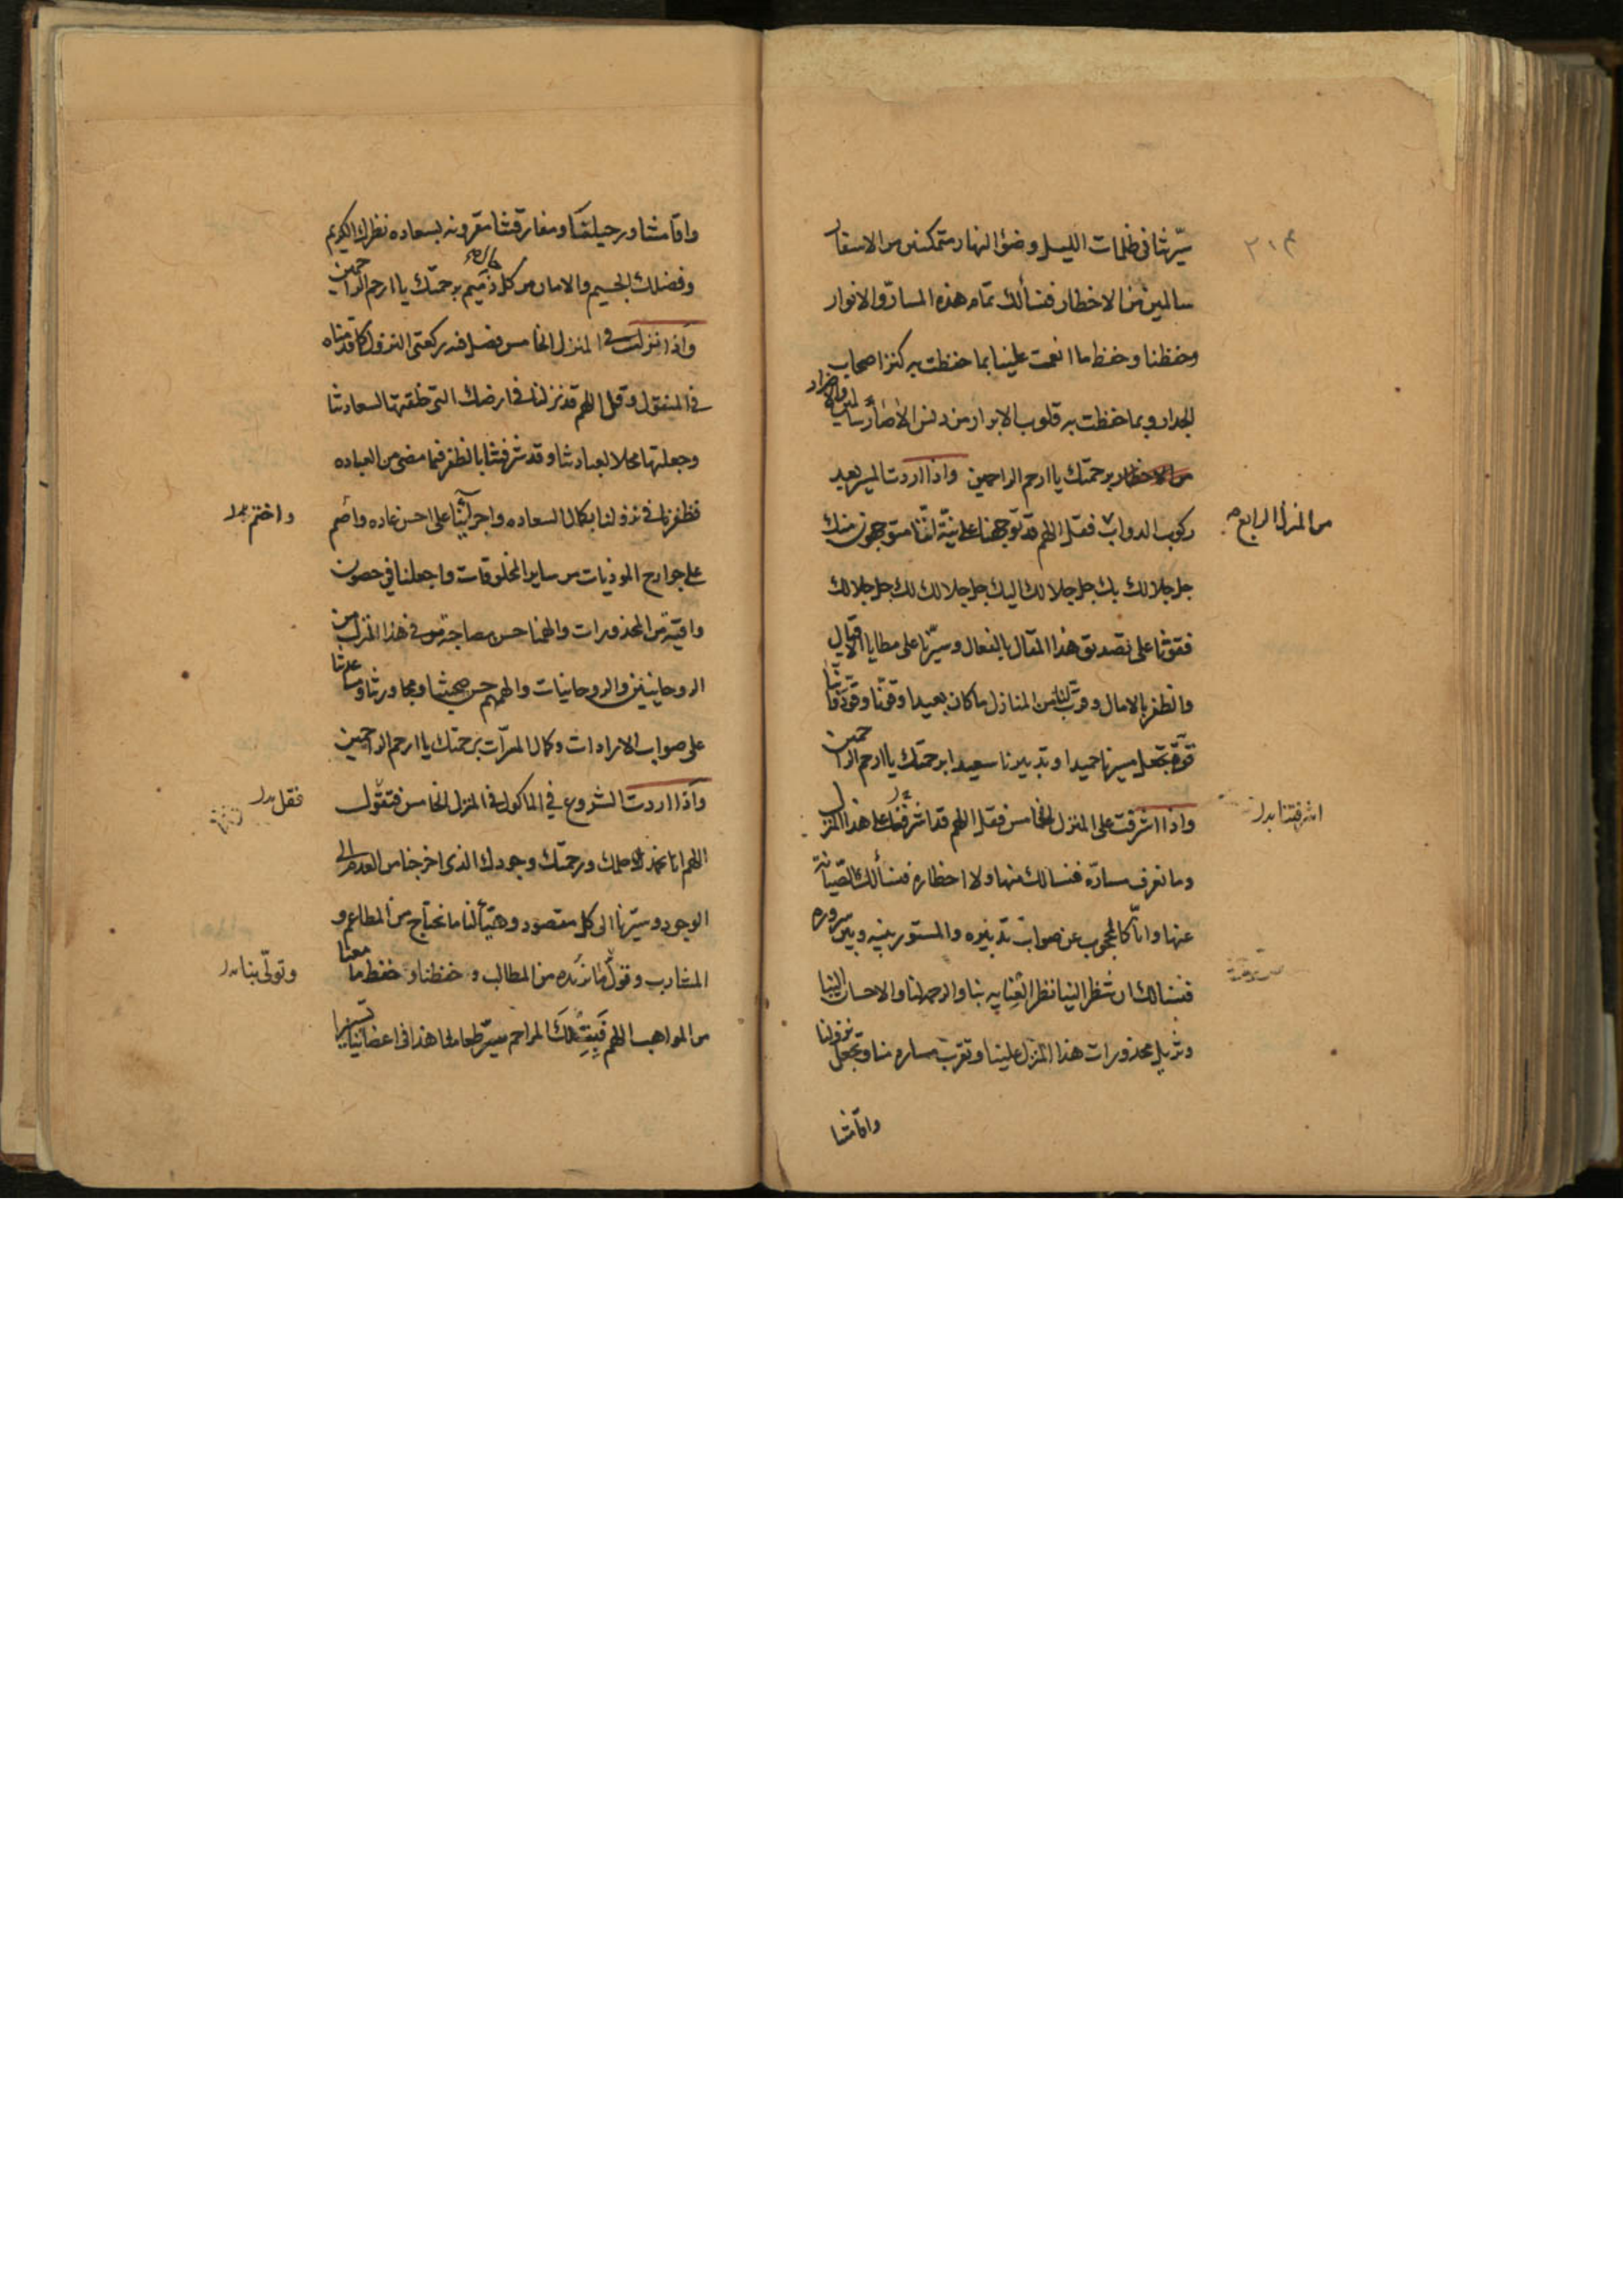 سيّرتنا في ظلمات الليل وضوء النهار متمكنين من الاسفار
سالمين من الاخطار فنسألك تمام هذه المسارّ والانوار
وحفظنا وحفظ ما انعمت علينا بما حفظت به كنز اصحاب
الجدار وبما حفظت به قلوب الابرار من دنس الاصار سالمين والاضرار
من الاخطار برحمتك يا ارحم الراحمين واذا اردت المسير بعد
من المنزل الرابع
ركوب الدواب فقل اللهم قد توجهنا على نيّة اننا متوجهون منك
جل جلالك بك جل جلالك اليك جل جلالك لك جل جلالك
فقوّنا على تصديق هذا المقال بالفعال وسيّرنا على مطايا الاقبال
والظفر بالامال وقرب لنا من المنازل ما كان بعيدا وقونا وقوّ دوابنا
قوة تجعل مسيرنا حميدا وتدبيرنا سعيدا برحمتك يا ارحم الراحمين
واذا اشرفت على المنزل الخامس فقل اللهم قد اشرفنا على هذا المنزل
اشرفتنا بدل
وما نعرف مسارّه فنسالك منها ولا اخطاره فنسألك الصيانة
عنها وانا كالمحجوب عن صواب تدبيره والمستور بينه وبين سروره
فنسالك ان تنظر الينا نظر العناية بنا والرحمة لنا والاحسان الينا
وتزيل محذورات هذا المنزل علينا وتقرب مساره منا وتجعل نزولنا
واقامتنا
واقامتنا ورحيلنا ومفارقتنا مقرونه بسعاده نظرك الكريم
وفضلك الجسيم والامان من كل ذميم برحمتك يا ارحم الراحمين
واذا نزلت في المنزل الخامس فصل فيه ركعتي النزول كما قدمناه
في المنقول وقل اللهم قد نزلنا في ارضك التي خلقتها لسعادتنا
وجعلتها محلا لعبادتنا وقد شرفتنا بالظفر فيما مضى من العباده
فظفرنا في نزولنا بكمال السعاده واجرائنا على احسن عاده واضمم
واختم بدل
على جوارح الموذيات من ساير المخلوقات واجعلنا في حصون
واقية من المحذورات والهمنا حسن مصاحبة من في هذا المنزل من
الروحانيين والروحانيات والهمهم حسن صحبتنا ومجاورتنا ومساعدتنا
على صواب الارادات وكمال المبرّات برحمتك يا ارحم الراحمين
واذا اردت الشروع في الماكول في المنزل الخامس فتقول
فقل بدل
اللهم انا نحمدك لاحلمك ورحمتك وجودك الذي اخرجنا من العدم الى
الوجود وسيّرنا الى كل مقصود وهيّأ لنا ما نحتاج من المطاعم و
المشارب وتولّ ما نريده من المطالب وحفظنا وحفظ ما معنا
وتولّى بنا بدل
من المواهب اللهم فبتلك المراحم سيّر طعامنا هذا في اعضائنا